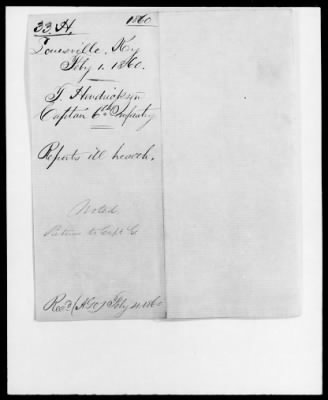 33. H. 1860
Louisville, Ky
Feby 1. 1860.
T. Hendrickson
Captain 6th Infantry
Reports ill health.
Noted
Return to Capt
Recd (AGO) Feby 4. 1860